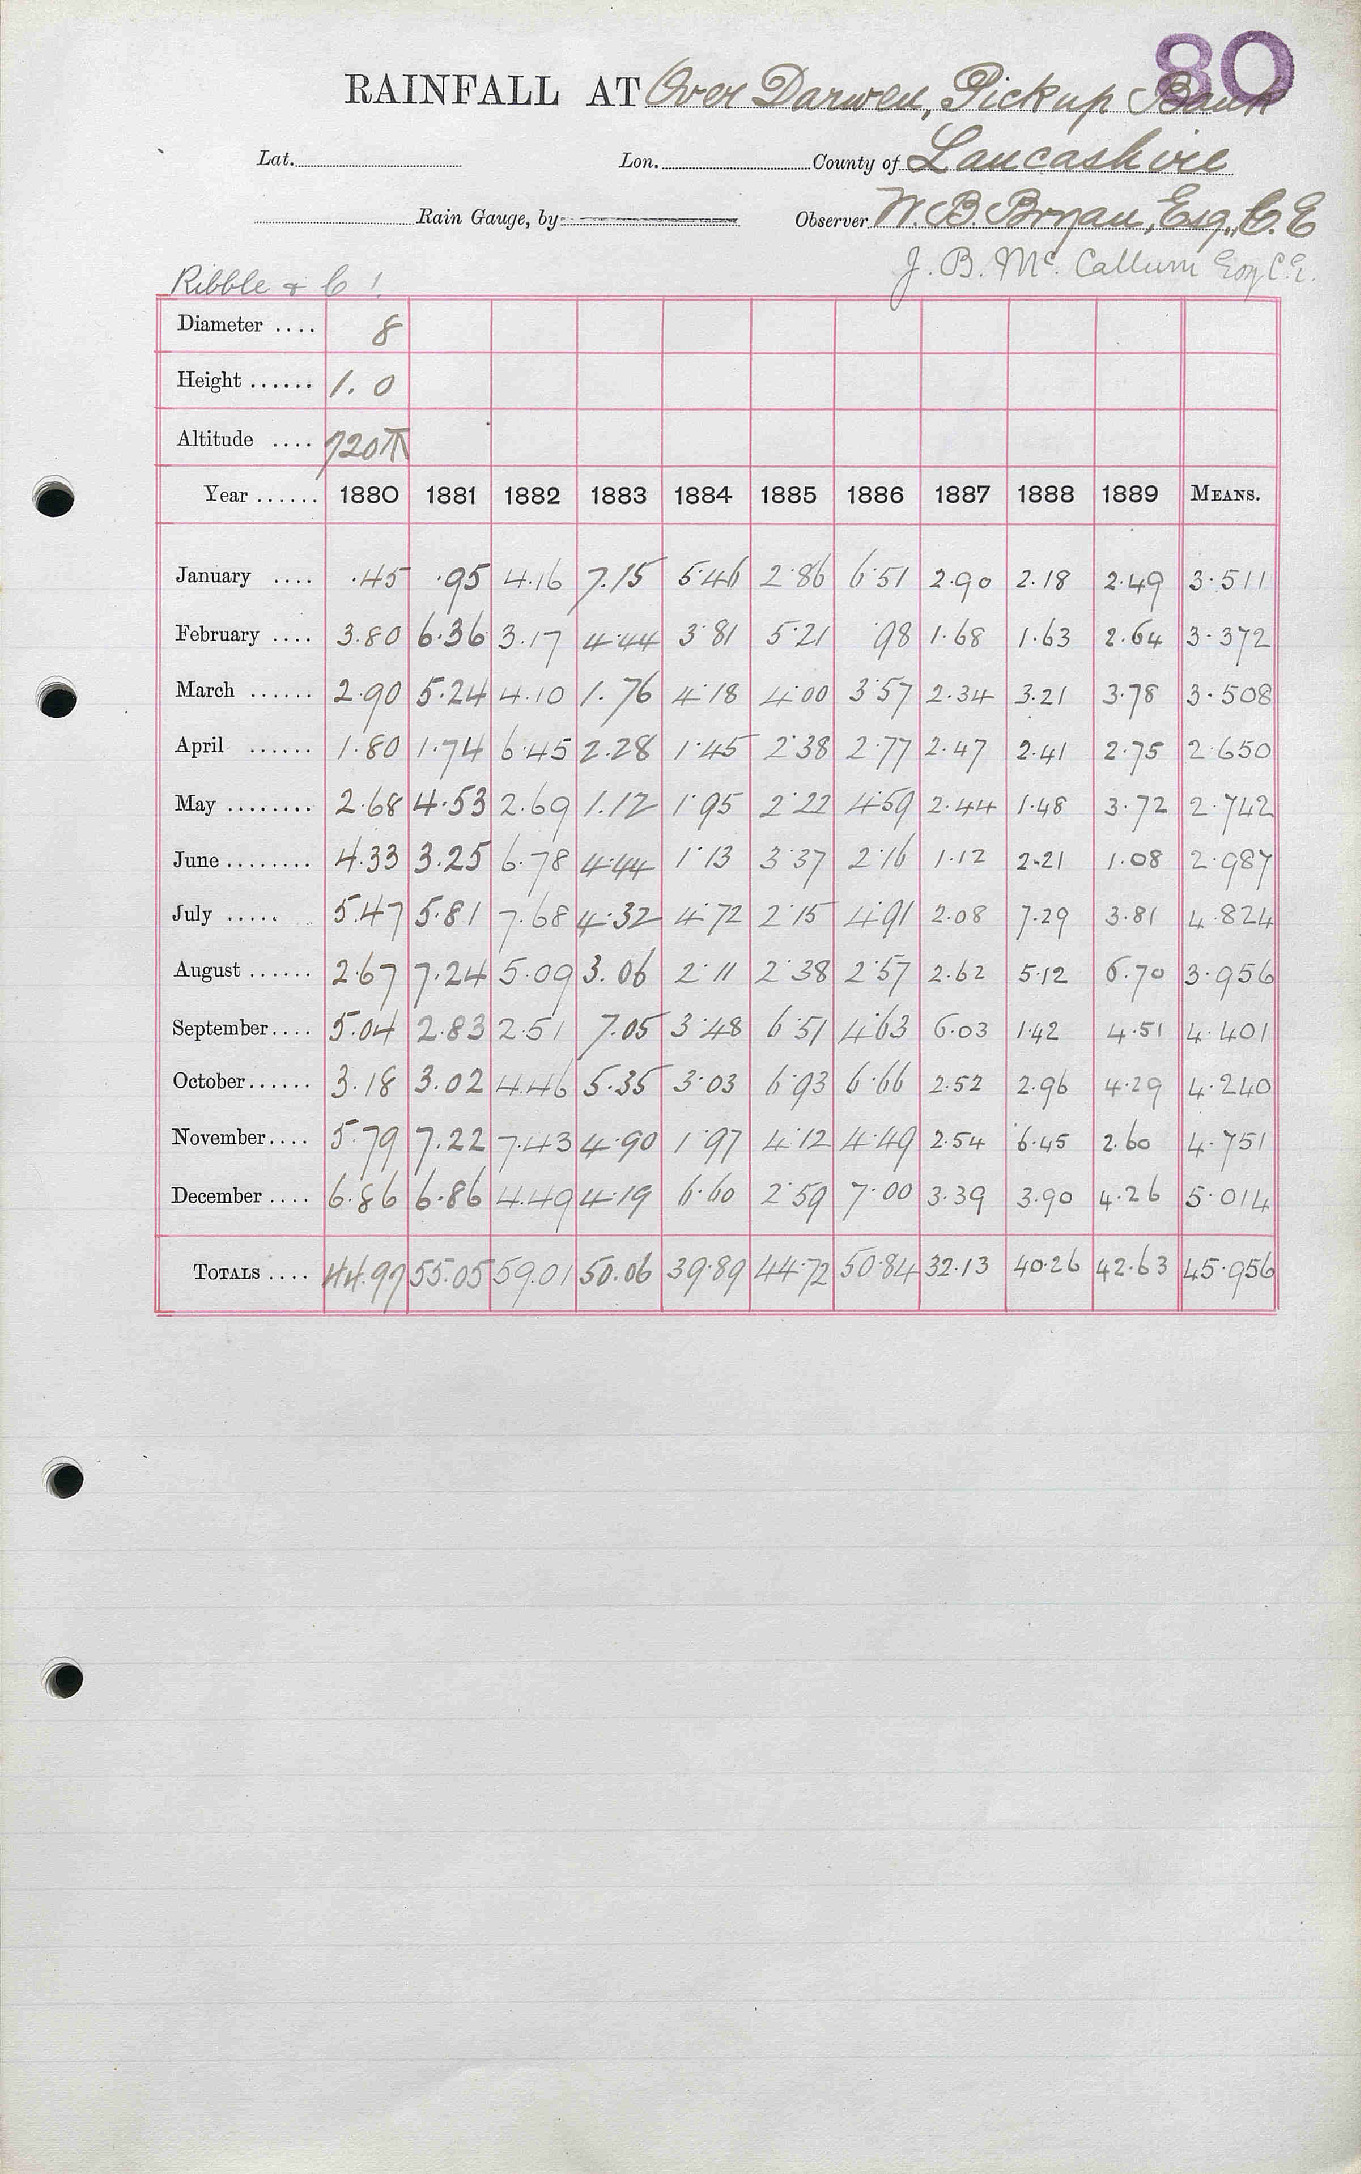 80
RAINFALL AT Over Darwen, Pickup Bank
Lat. Lon. County of Lancashire
Rain Gauge, by Observer W. B. Bryan, Esq., C.E
J. B. Mc. Callum Esq C.E.
Ribble & C
Diameter .... 8
Height ...... 1. 0
Altitude .... 720
Year ...... 1880 1881 1882 1883 1884 1885 1886 1887 1888 1889 MEANS.
January .... .45 .95 4.16 7.15 5.46 2.86 6.51 2.90 2.18 2.49 3.511
February .... 3.80 6.36 3.17 4.44 3.81 5.21 .98 1.68 1.63 2.64 3.372
March ...... 2.90 5.24 4.10 1.76 4.18 4.00 3.57 2.34 3.21 3.78 3.508
April ...... 1.80 1.74 6.45 2.28 1.45 2.38 2.77 2.47 2.41 2.75 2.650
May ........ 2.68 4.53 2.69 1.12 1.95 2.22 4.59 2.44 1.48 3.72 2.742
June ........ 4.33 3.25 6.78 4.44 1.13 3.37 2.16 1.12 2.21 1.08 2.987
July ..... 5.47 5.81 7.68 4.32 4.72 2.15 4.91 2.08 7.29 3.81 4.824
August ...... 2.67 7.24 5.09 3.06 2.11 2.38 2.57 2.62 5.12 6.70 3.956
September.... 5.04 2.83 2.51 7.05 3.48 6.51 4.63 6.03 1.42 4.51 4.401
October...... 3.18 3.02 4.46 5.35 3.03 6.93 6.66 2.52 2.96 4.29 4.240
November.... 5.79 7.22 7.43 4.90 1.97 4.12 4.49 2.54 6.45 2.60 4.751
December .... 6.86 6.86 4.49 4.19 6.60 2.59 7.00 3.39 3.90 4.26 5.014
TOTALS .... 44.97 55.05 59.01 50.06 39.89 44.72 50.84 32.13 40.26 42.63 45.956